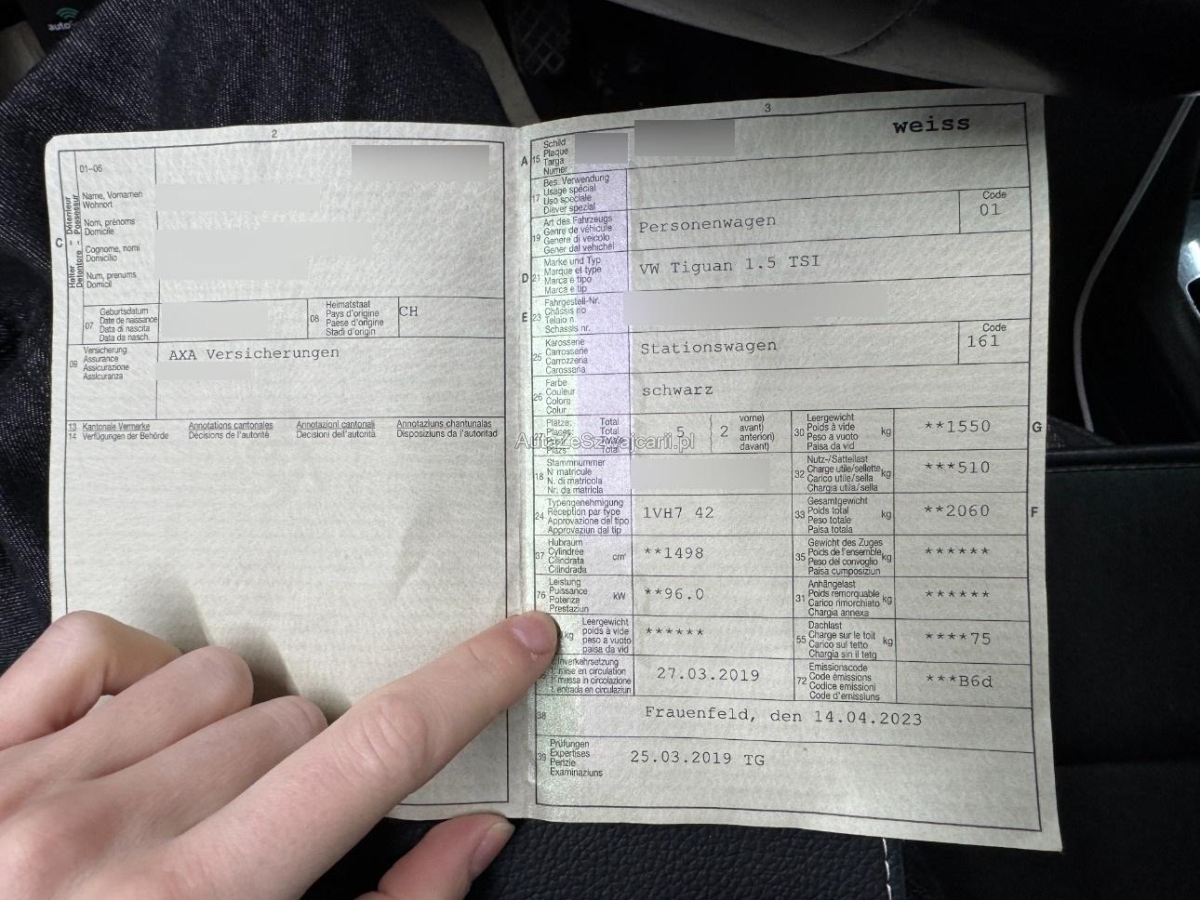 auto
2
01-06
Halter
Détenteur
Detentore
Possessur
C
Name, Vornamen
Wohnort
Nom, prénoms
Domicile
Cognome, nomi
Domicilio
Num, prenums
Domicil
07
Geburtsdatum
Date de naissance
Data di nascita
Data da nasch.
08
Heimatstaat
Pays d'origine
Paese d'origine
Stadi d'origin
CH
09
Versicherung
Assurance
Assicurazione
Assicuranza
AXA Versicherungen
13 Kantonale Vermerke
14 Verfügungen der Behörde
Annotations cantonales
Décisions de l'autorité
Annotazioni cantonali
Decisioni dell'autorità
Annotaziuns chantunalas
Disposiziuns da l'autoritad
3
A
15
Schild
Plaque
Targa
Numer
weiss
17
Bes. Verwendung
Usage spécial
Uso speciale
Diever spezial
19
Art des Fahrzeugs
Genre de véhicule
Genere di veicolo
Gener dal vehichel
Personenwagen
Code
01
D
21
Marke und Typ
Marque et type
Marca e tipo
Marca e tip
VW Tiguan 1.5 TSI
E
23
Fahrgestell-Nr.
Châssis no
Telaio n.
Schassis nr.
25
Karosserie
Carrosserie
Carrozzeria
Carossaria
Stationswagen
Code
161
26
Farbe
Couleur
Colore
Colur
schwarz
Plätze: Total
Places: Total
Totale
Plazs: Total
5
2
vorne)
avant)
anteriori)
davant)
30
Leergewicht
Poids à vide
Peso a vuoto
Paisa da vid
kg
**1550
G
AutaZeSzwajcarii.pl
18
Stammnummer
N matricule
N. di matricola
Nr. da matricla
32
Nutz-/Sattellast
Charge utile/sellette
Carico utile/sella
Chargia utila/sella
kg
***510
24
Typengenehmigung
Réception par type
Approvazione del tipo
Approvaziun dal tip
1VH7 42
33
Gesamtgewicht
Poids total
Peso totale
Paisa totala
kg
**2060
F
37
Hubraum
Cylindrée
Cilindrata
Cilindrada
cm³
**1498
35
Gewicht des Zuges
Poids de l'ensemble
Peso del convoglio
Paisa cumposiziun
kg
******
76
Leistung
Puissance
Potenza
Prestaziun
kW
**96.0
31
Anhängelast
Poids remorquable
Carico rimorchiato
Chargia annexa
kg
******
kg
Leergewicht
poids à vide
peso a vuoto
paisa da vid
******
55
Dachlast
Charge sur le toit
Carico sul tetto
Chargia sin il tetg
kg
****75
1. Inverkehrsetzung
1. mise en circulation
1. messa in circolazione
1. entrada en circulaziun
27.03.2019
72
Emissionscode
Code émissions
Codice emissioni
Code d'emissiuns
***B6d
38
Frauenfeld, den 14.04.2023
39
Prüfungen
Expertises
Perizie
Examinaziuns
25.03.2019 TG